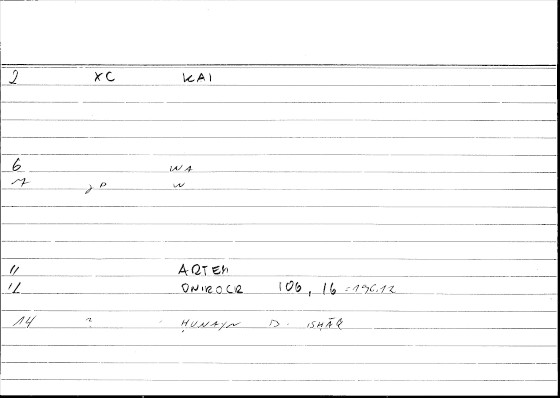 2 XC KAI
6 WA
7 JP W
11 ARTEM
12 ONIROCR 106, 16 = 196.12
14 2 ḤUNAYN D. ISHĀQ